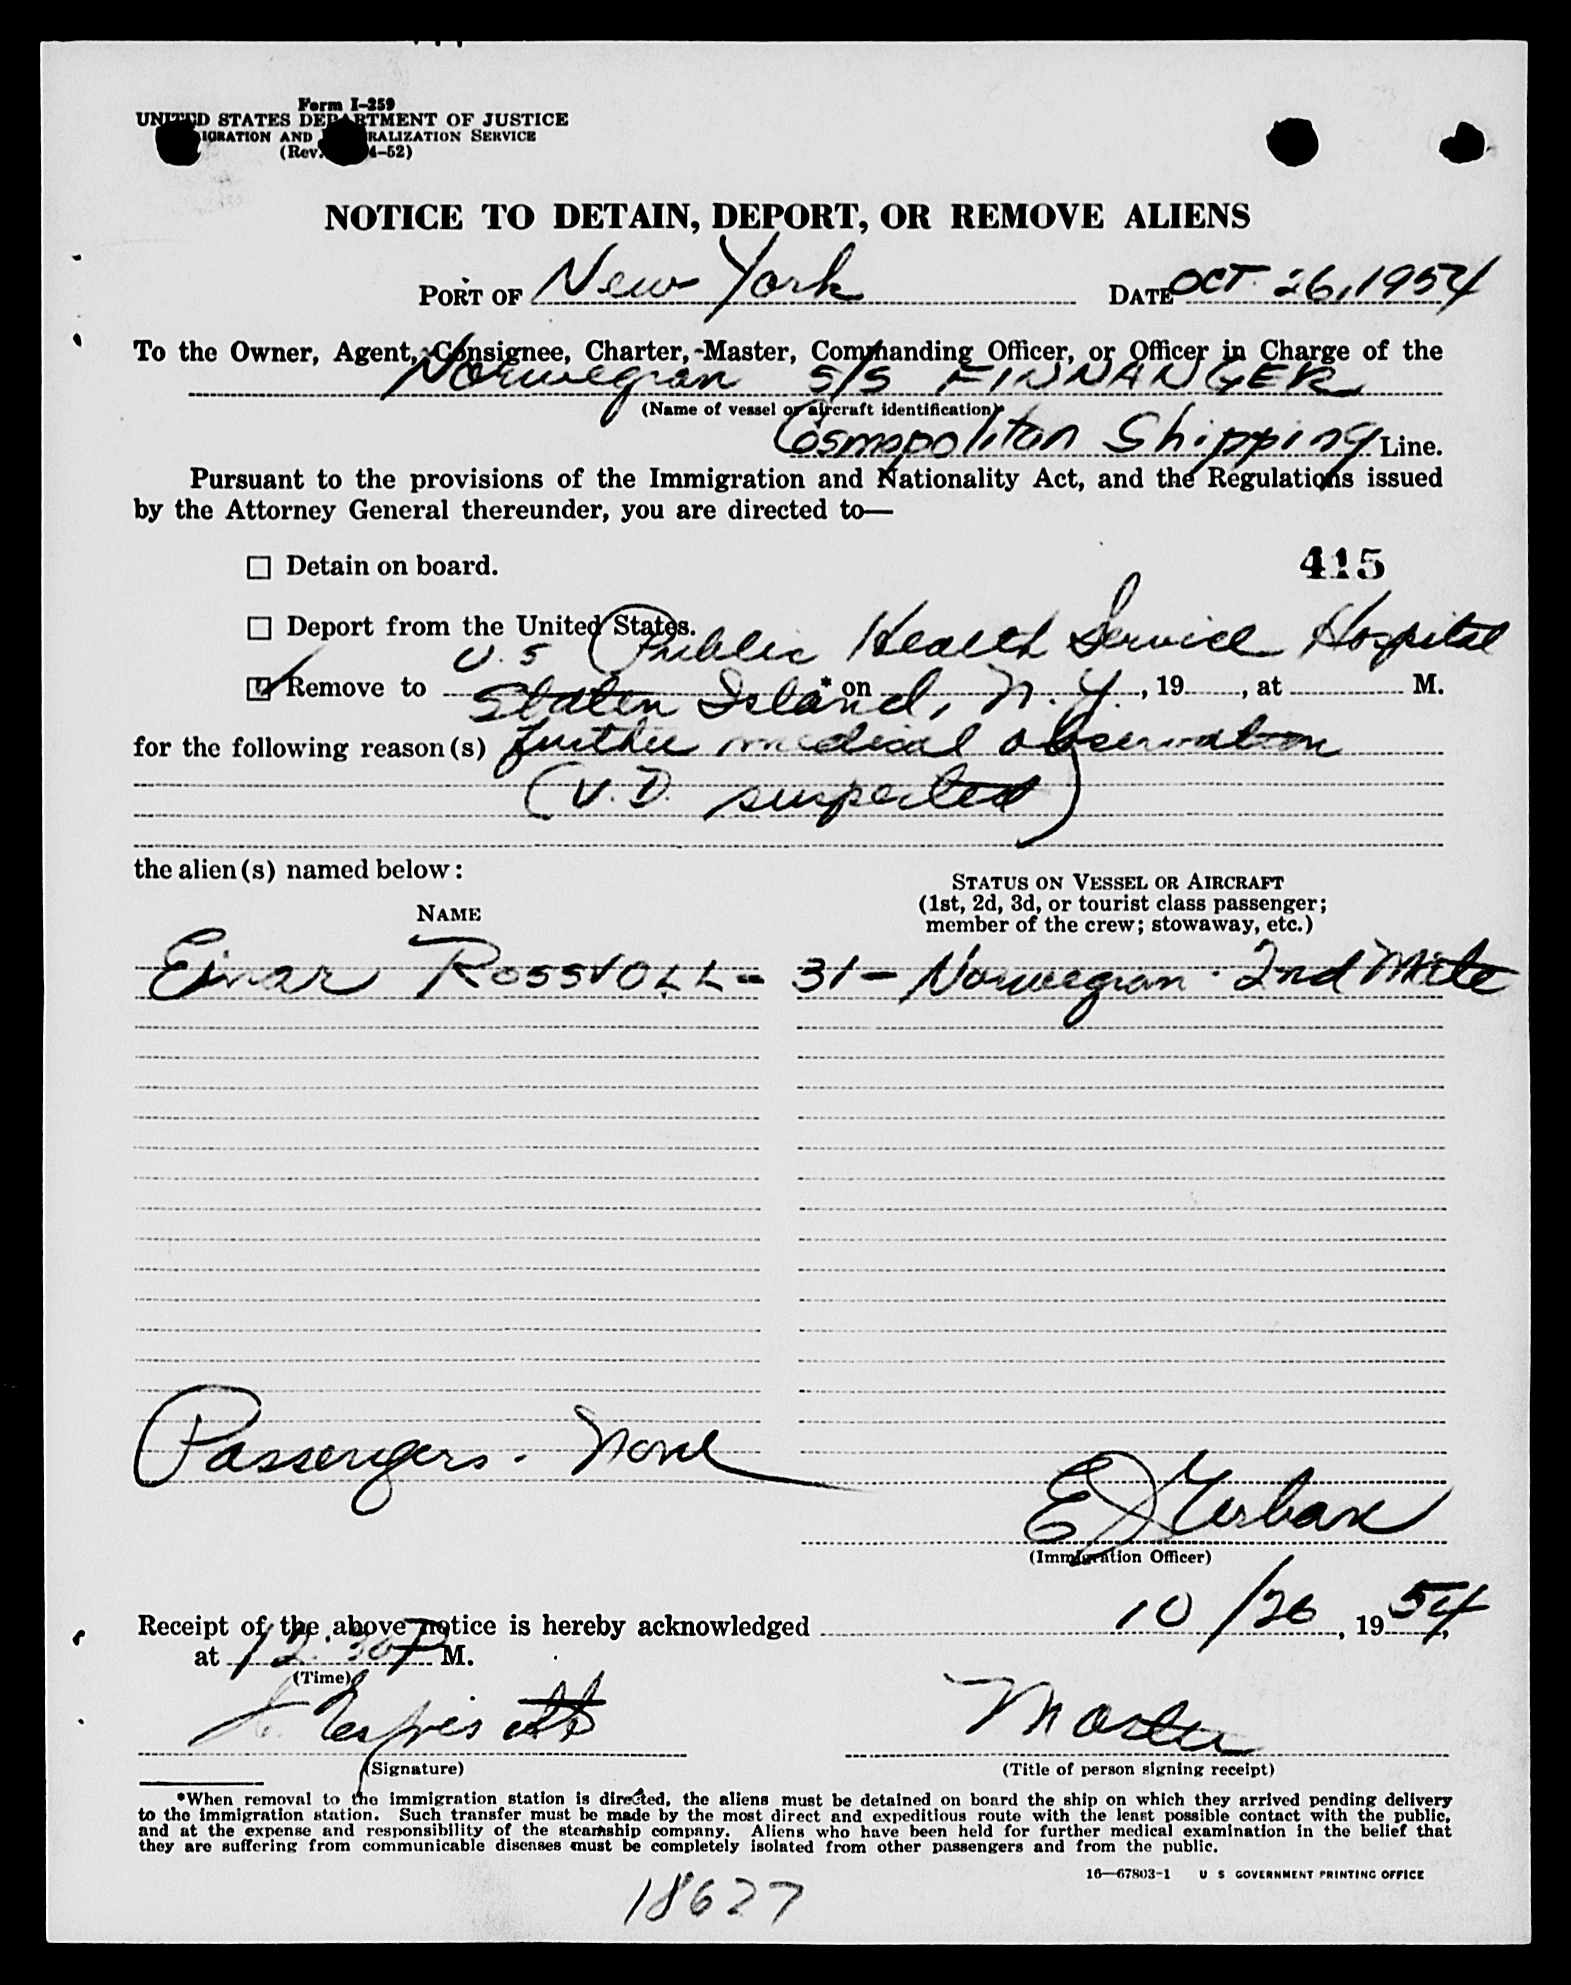 Form I-259
UNITED STATES DEPARTMENT OF JUSTICE
IGRATION AND RALIZATION SERVICE
(Rev. 4-52)
NOTICE TO DETAIN, DEPORT, OR REMOVE ALIENS
PORT OF New York DATE OCT. 26, 1954
To the Owner, Agent, Consignee, Charter, Master, Commanding Officer, or Officer in Charge of the
Norwegian S/S FINNANGER
(Name of vessel or aircraft identification)
Cosmopolitan Shipping Line.
Pursuant to the provisions of the Immigration and Nationality Act, and the Regulations issued
by the Attorney General thereunder, you are directed to—
☐ Detain on board.
415
☐ Deport from the United States.
U.S Public Health Service Hospital
☑ Remove to * on , 19 , at M.
Staten Island, N.Y.
for the following reason(s) further medical observation
(V.D. suspected)
the alien(s) named below:
STATUS ON VESSEL OR AIRCRAFT
(1st, 2d, 3d, or tourist class passenger;
member of the crew; stowaway, etc.)
NAME
Einar ROSSVOLL - 31 - Norwegian - 2nd Mate
Passengers - None
(Immigration Officer)
Receipt of the above notice is hereby acknowledged 10/26, 1954,
at 12:30 P M.
(Time)
Master
(Signature) (Title of person signing receipt)
*When removal to the immigration station is directed, the aliens must be detained on board the ship on which they arrived pending delivery
to the immigration station. Such transfer must be made by the most direct and expeditious route with the least possible contact with the public,
and at the expense and responsibility of the steamship company. Aliens who have been held for further medical examination in the belief that
they are suffering from communicable diseases must be completely isolated from other passengers and from the public.
16—67803-1 U S GOVERNMENT PRINTING OFFICE
18627